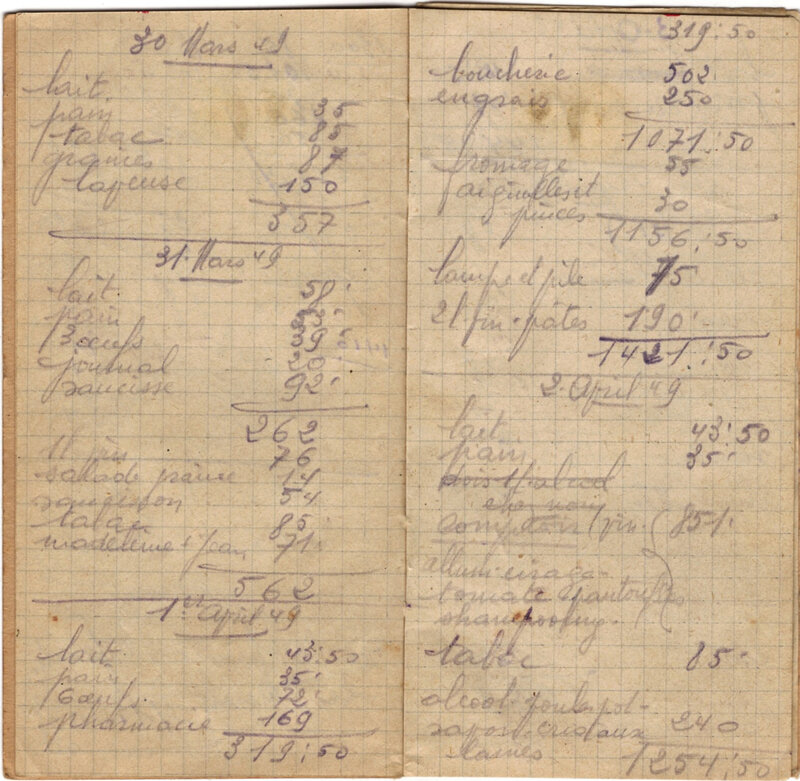 30 Mars 49
lait
pain 35
tabac 85
graines 87
lapeuse 150
357
31 Mars 49
lait 58
pain
3 œufs
journal
saucisse 92
262
1 l vin 76
salade 14
saucisson 54
tabac 85
madeleine 71
562
1er April 49
lait 43:50
pain 35
6 œufs 72
pharmacie 169
319:50
319:50
boucherie 502
engrais 250
1071:50
fromage 55
aiguilles et
pinces 30
1156:50
lampe et pile 75
2 l vin - pâtes 190
1421:50
2 April 49
lait 43:50
pain 35
comptoir vin 851
allum cirage
tomate pantoufles
shampooing
tabac 85
alcool
savon cristaux 240
lames
1254:50